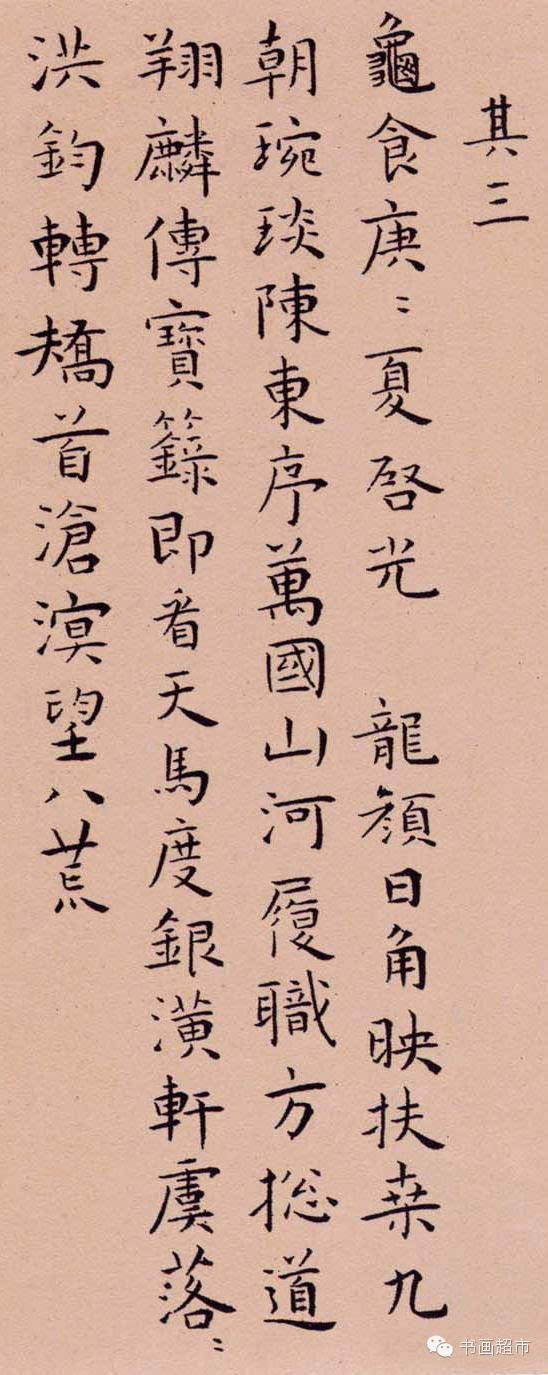 其三
龜食庚〻夏啓光　龍顏日角映扶桒九
朝琬琰陳東序萬國山河履職方捴道
翔麟傳寶籙即看天馬度銀潢軒虞落〻
洪鈞轉矯首滄溟望八荒
书画超市